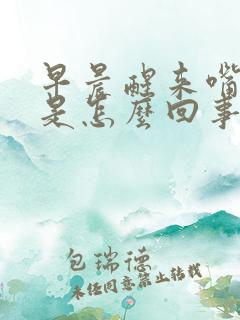 早晨醒来嘴
是怎麽回事
包瑞德
未经同意禁止转载